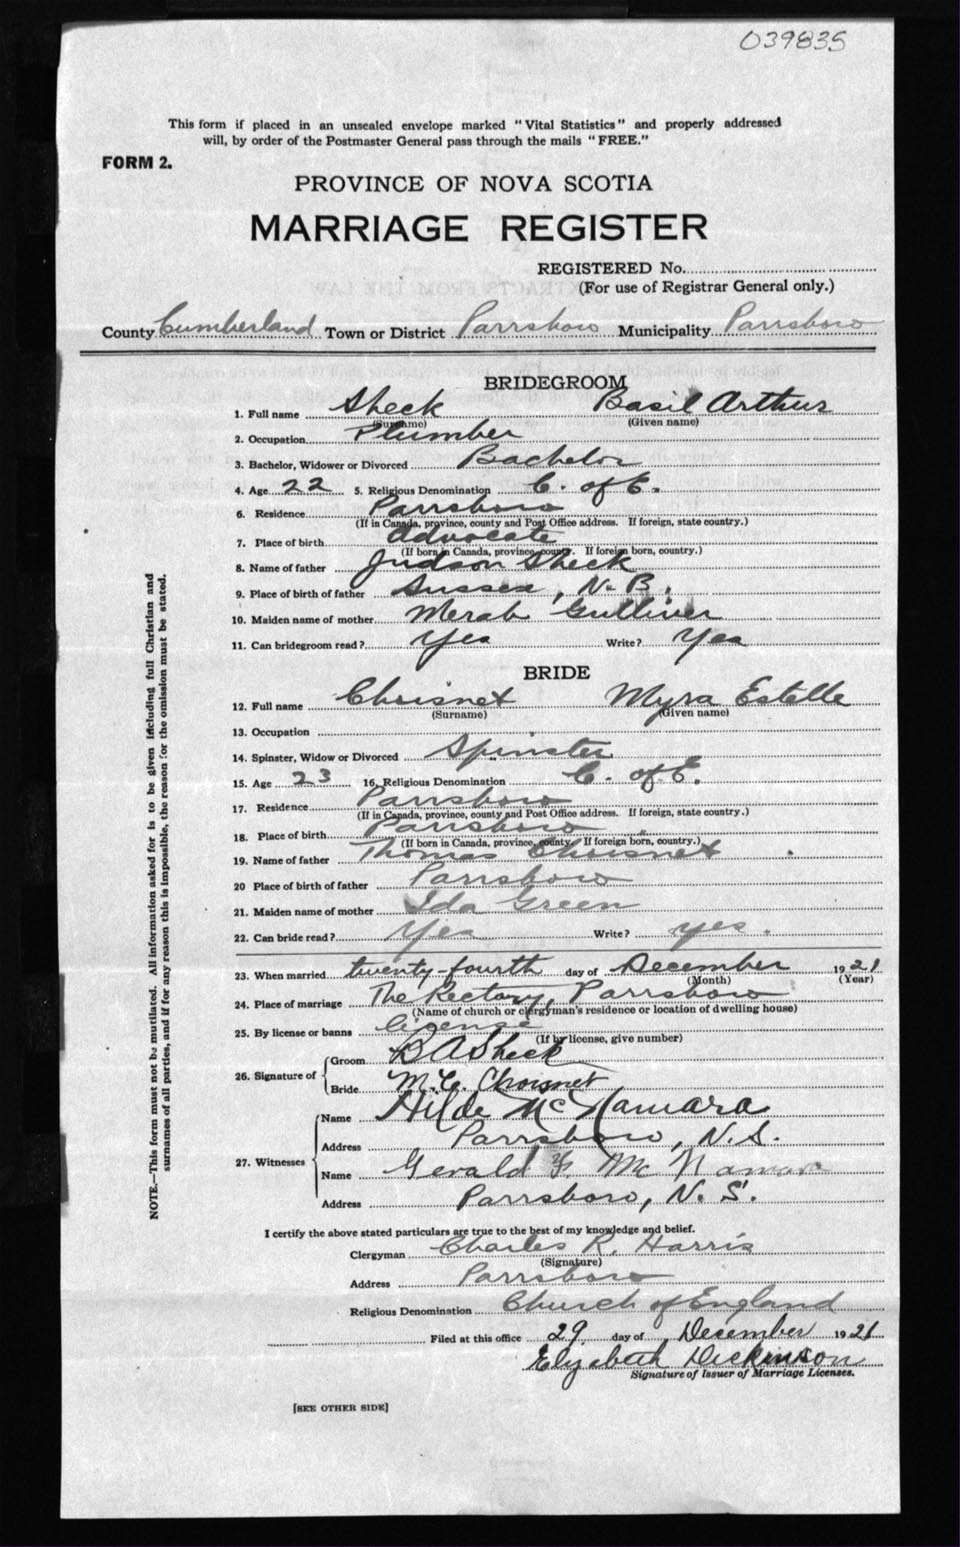 039835
This form if placed in an unsealed envelope marked "Vital Statistics" and properly addressed
will, by order of the Postmaster General pass through the mails "FREE."
FORM 2.
PROVINCE OF NOVA SCOTIA
MARRIAGE REGISTER
REGISTERED No.
(For use of Registrar General only.)
County Cumberland Town or District Parrsboro Municipality Parrsboro
BRIDEGROOM
1. Full name Sheck Basil Arthur
(Surname) (Given name)
2. Occupation Plumber
3. Bachelor, Widower or Divorced Bachelor
4. Age 22 5. Religious Denomination C. of E.
6. Residence Parrsboro
(If in Canada, province, county and Post Office address. If foreign, state country.)
7. Place of birth Advocate
(If born in Canada, province, county. If foreign born, country.)
8. Name of father Judson Sheck
9. Place of birth of father Sussex, N.B.
10. Maiden name of mother Merab Gulliver
11. Can bridegroom read? Yes Write? Yes
BRIDE
12. Full name Choisnet Myra Estelle
(Surname) (Given name)
13. Occupation
14. Spinster, Widow or Divorced Spinster
15. Age 23 16. Religious Denomination C. of E.
17. Residence Parrsboro
(If in Canada, province, county and Post Office address. If foreign, state country.)
18. Place of birth Parrsboro "
(If born in Canada, province, county. If foreign born, country.)
19. Name of father Thomas Choisnet
20 Place of birth of father Parrsboro
21. Maiden name of mother Ida Green
22. Can bride read? Yes Write? yes.
23. When married twenty-fourth day of December 1921
(Month) (Year)
24. Place of marriage The Rectory, Parrsboro
(Name of church or clergyman's residence or location of dwelling house)
25. By license or banns license
(If by license, give number)
26. Signature of Groom B A Sheck
Bride M.E. Choisnet
27. Witnesses Name Hilde McNamara
Address Parrsboro, N.S.
Name Gerald F. McNamara
Address Parrsboro, N.S.
I certify the above stated particulars are true to the best of my knowledge and belief.
Clergyman Charles R. Harris
(Signature)
Address Parrsboro
Religious Denomination Church of England
Filed at this office 29 day of December 1921
Elizabeth Dickinson
Signature of Issuer of Marriage Licenses.
[SEE OTHER SIDE]
NOTE.—This form must not be mutilated. All information asked for is to be given including full Christian and
surnames of all parties, and if for any reason this is impossible, the reason for the omission must be stated.